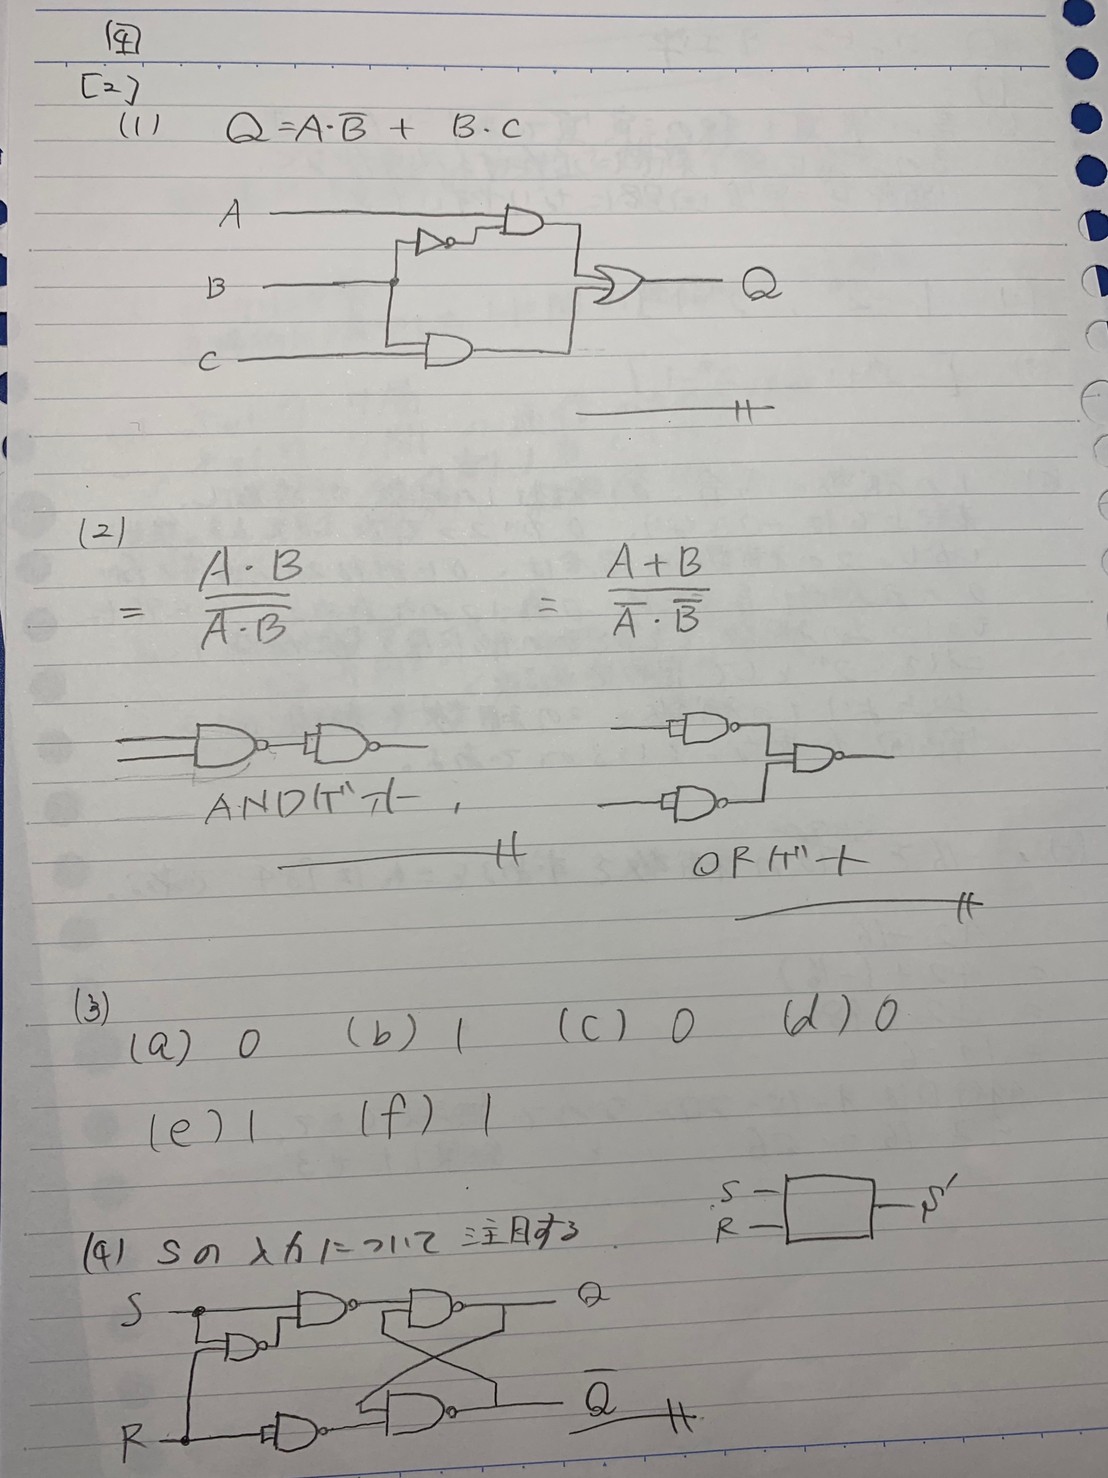 4
[2]
(1) Q=A・B̅ + B・C
A
B
Q
C
(2)
A・B A+B
= A̿・̿B̿ = A̅・B̅
ANDゲート, ORゲート
(3)
(a) 0 (b) 1 (c) 0 (d) 0
(e) 1 (f) 1
S S'
R
(4) Sの入力について注目する.
S Q
R Q̅